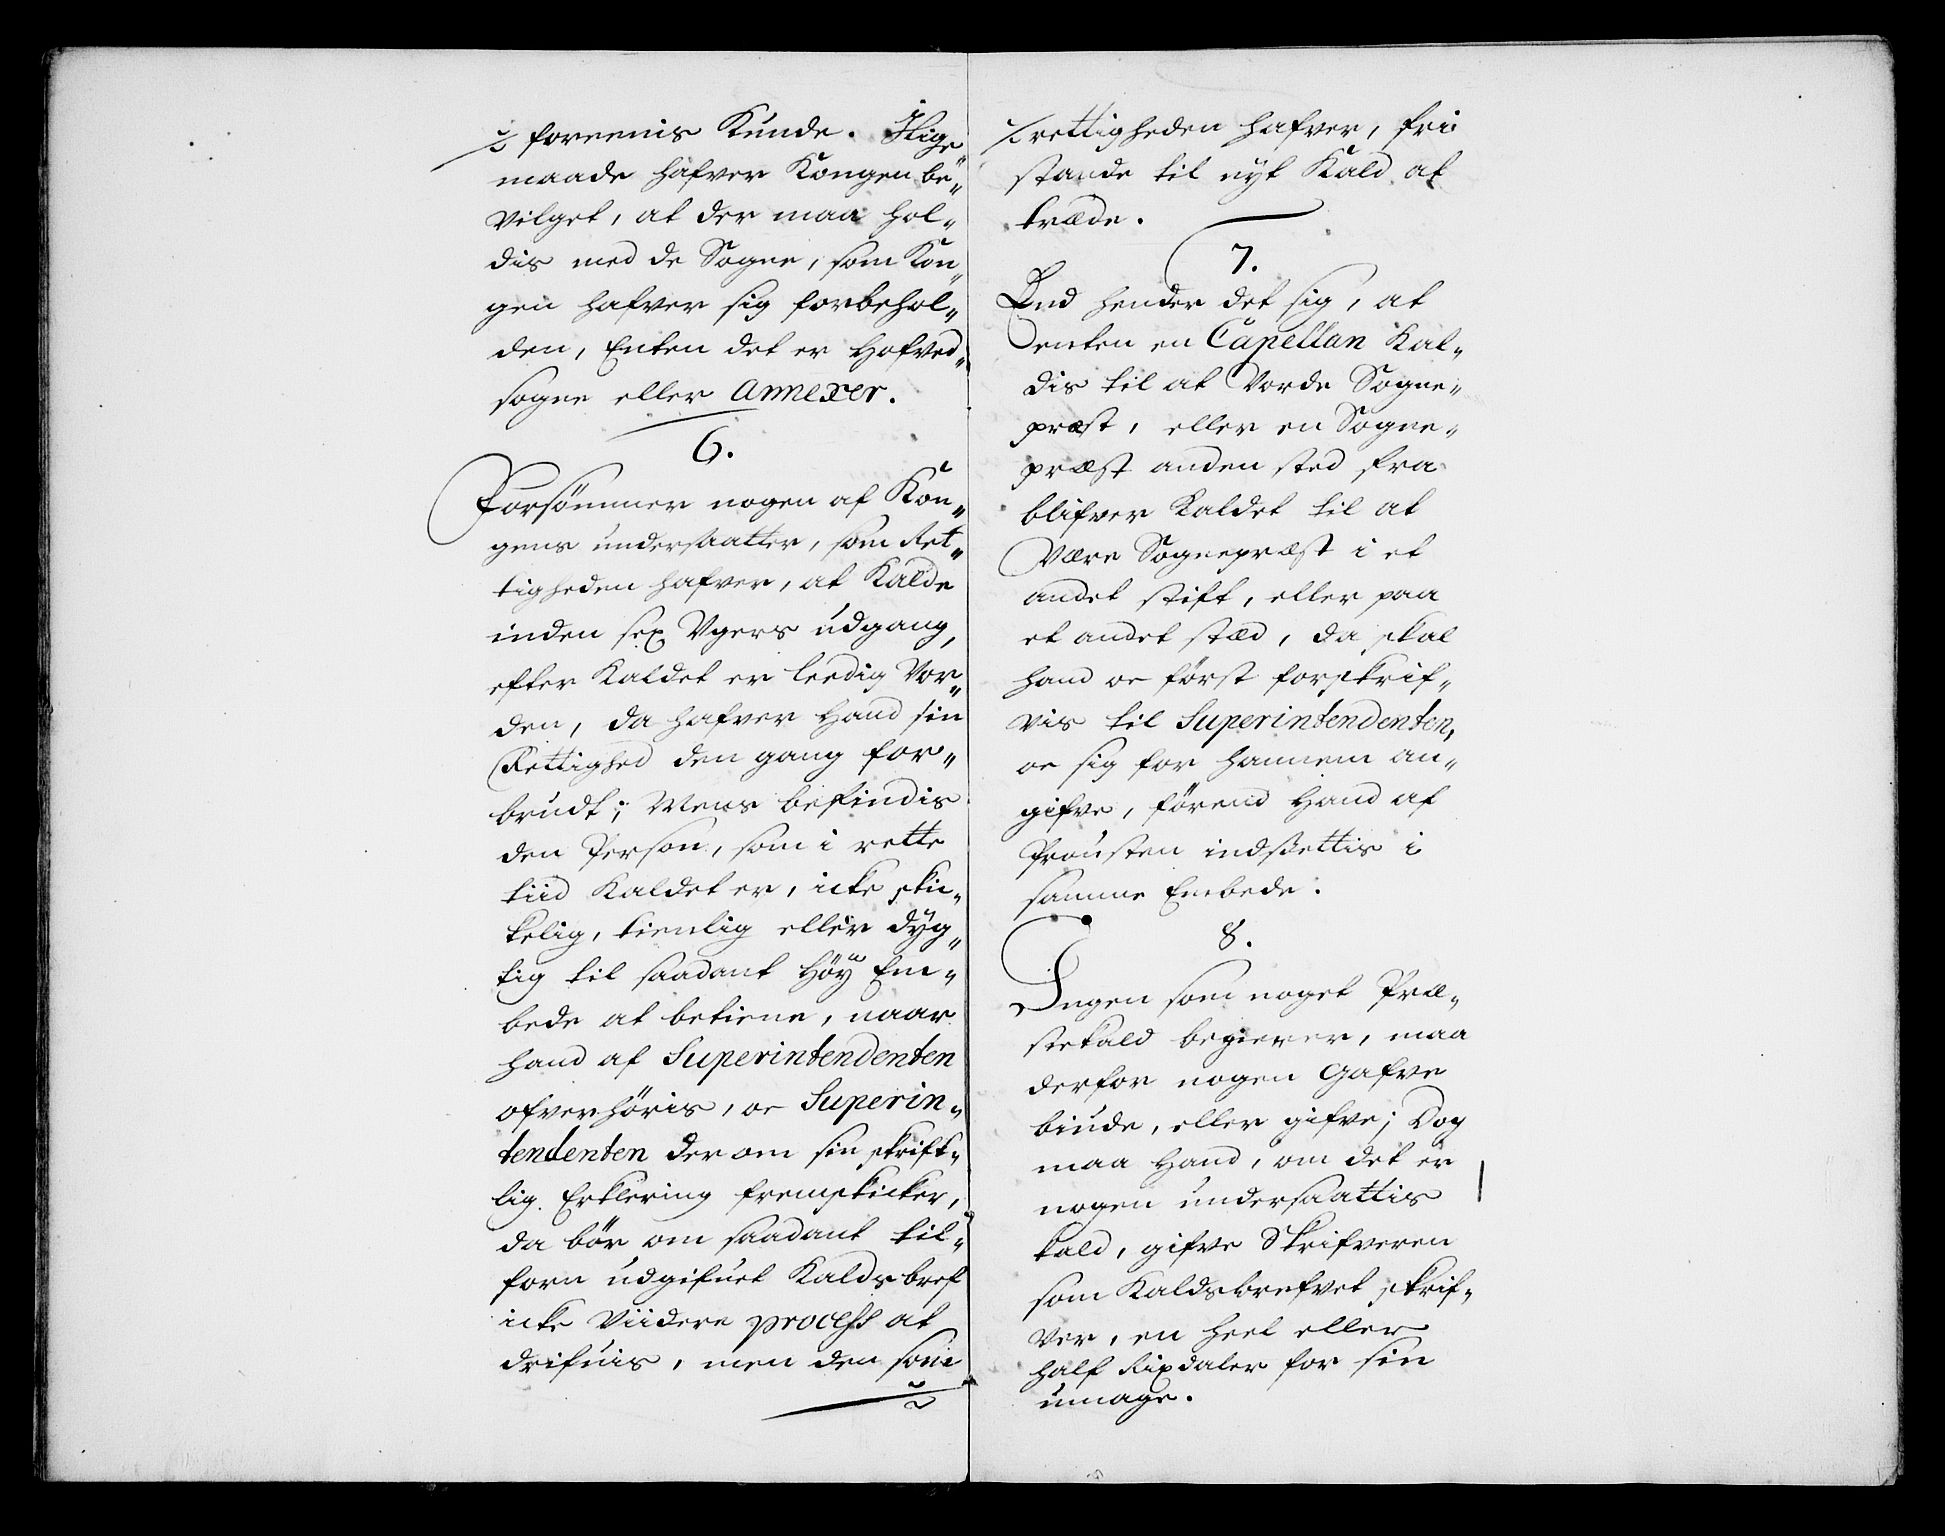 foreenis Kunde. I lige
maade hafver Kongen be„
vilget, at der maa hol„
dis med de Sogne, som Kon„
gen hafver sig forbehol„
den, Enten det er Hofved„
sogne eller Annexer.
6.
Forsømmer nogen af Kon„
gens undersaatter, som Ret„
tigheden hafver, at Kalde
inden sex Vgers udgang,
efter Kaldet er leedig Vor„
den, da hafver Hand sin
Rettighed den gang for„
brudt; Mens befindis
den Person, som i rette
tiid Kaldet er, icke skic„
kelig, tienlig eller dyg„
tig til saadant Høy Em„
bede at betiene, naar
hand af Superintendenten
ofverhøris, oc Superin„
tendenten der om sin skrift„
lig Erklering fremskicker,
da bør om saadant til„
forn udgifuet Kaldsbref
icke Viidere process at
drifuis, men den som
rettigheden hafver, frii
stande til nyt Kald at
træde.
7.
End hender det sig, at
enten en Capellan Kal„
dis til at Vorde Sogne„
præst, eller en Sogne„
præst anden sted fra
blifver Kaldet til at
Være Sognepræst i et
andet stift, eller paa
et andet stæd, da skal
hand oc først forskrif„
vis til Superintendenten,
oc sig for hannem an„
gifve, førend Hand af
Prousten indsættis i
samme Embede.
8.
Ingen som noget Præ„
stekald begierer, maa
derfor nogen Gafve
biude, eller gifve; Dog
maa Hand, om det er
nogen undersaattis
kald, gifve Skrifveren
som Kaldsbrefvet skrif„
ver, en heel eller
half Rixdaler for sin
umage.